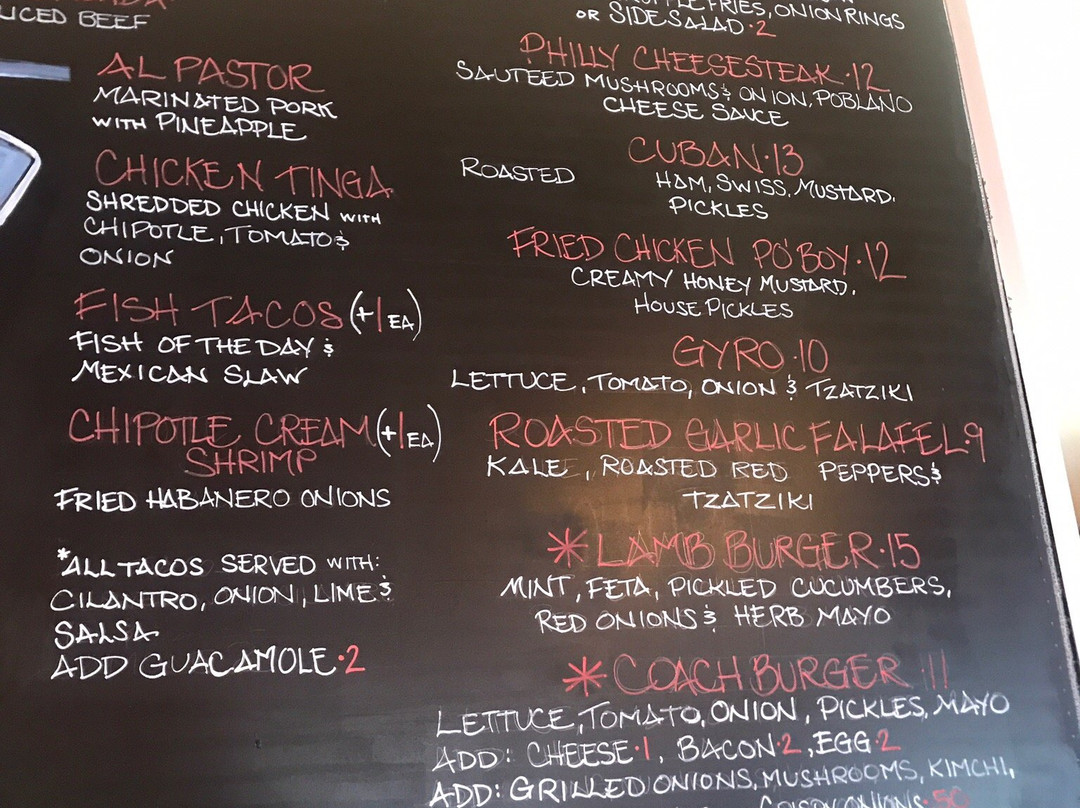 LICED BEEF
AL PASTOR
MARINATED PORK
WITH PINEAPPLE
CHICKEN TINGA
SHREDDED CHICKEN WITH
CHIPOTLE, TOMATO &
ONION
FISH TACOS (+1 EA)
FISH OF THE DAY &
MEXICAN SLAW
CHIPOTLE CREAM (+1 EA)
SHRIMP
FRIED HABANERO ONIONS
*ALL TACOS SERVED WITH:
CILANTRO, ONION, LIME &
SALSA
ADD GUACAMOLE·2
FRIES, ONION RINGS
OR SIDE SALAD·2
PHILLY CHEESESTEAK·12
SAUTEED MUSHROOMS & ONION, POBLANO
CHEESE SAUCE
CUBAN·13
ROASTED HAM, SWISS, MUSTARD,
PICKLES
FRIED CHICKEN PO'BOY·12
CREAMY HONEY MUSTARD,
HOUSE PICKLES
GYRO·10
LETTUCE, TOMATO, ONION & TZATZIKI
ROASTED GARLIC FALAFEL·9
KALE, ROASTED RED PEPPERS &
TZATZIKI
*LAMB BURGER·15
MINT, FETA, PICKLED CUCUMBERS,
RED ONIONS & HERB MAYO
*COACH BURGER 11
LETTUCE, TOMATO, ONION, PICKLES, MAYO
ADD: CHEESE·1, BACON·2, EGG·2
ADD: GRILLED ONIONS, MUSHROOMS, KIMCHI,
CRISPY ONIONS·50